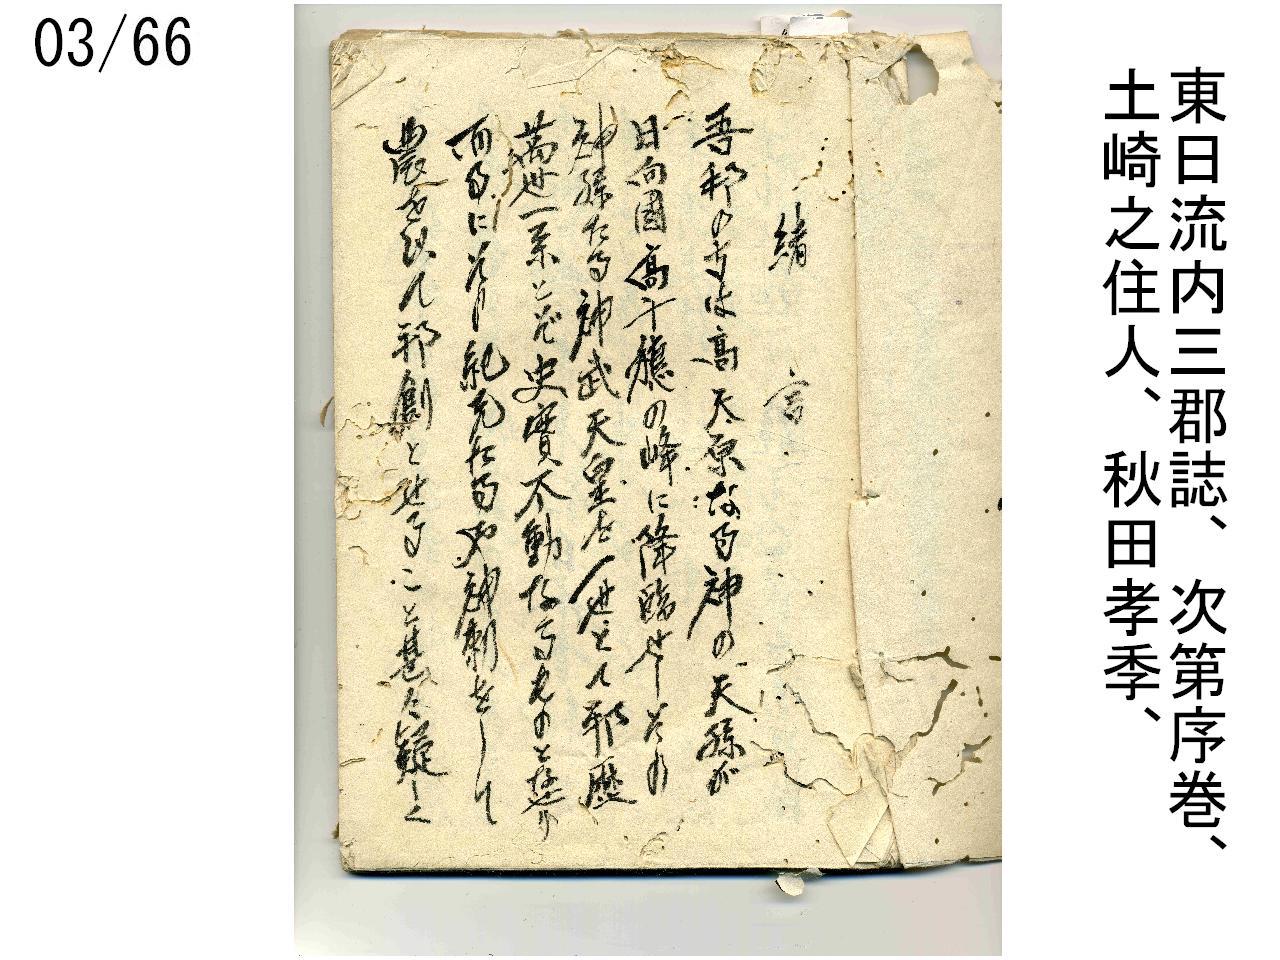 03/66
東日流内三郡誌、次第序巻、
土崎之住人、秋田孝季、
緒言
吾邦の史は高天原なる神の天孫が
日向國高千穂の峰に降臨せしその
神孫たる神武天皇を一世として邦歴
萬世一系とぞ史實不動なるものと
にそ たる 神 をして
農をひて邦創と こと甚だ疑しく